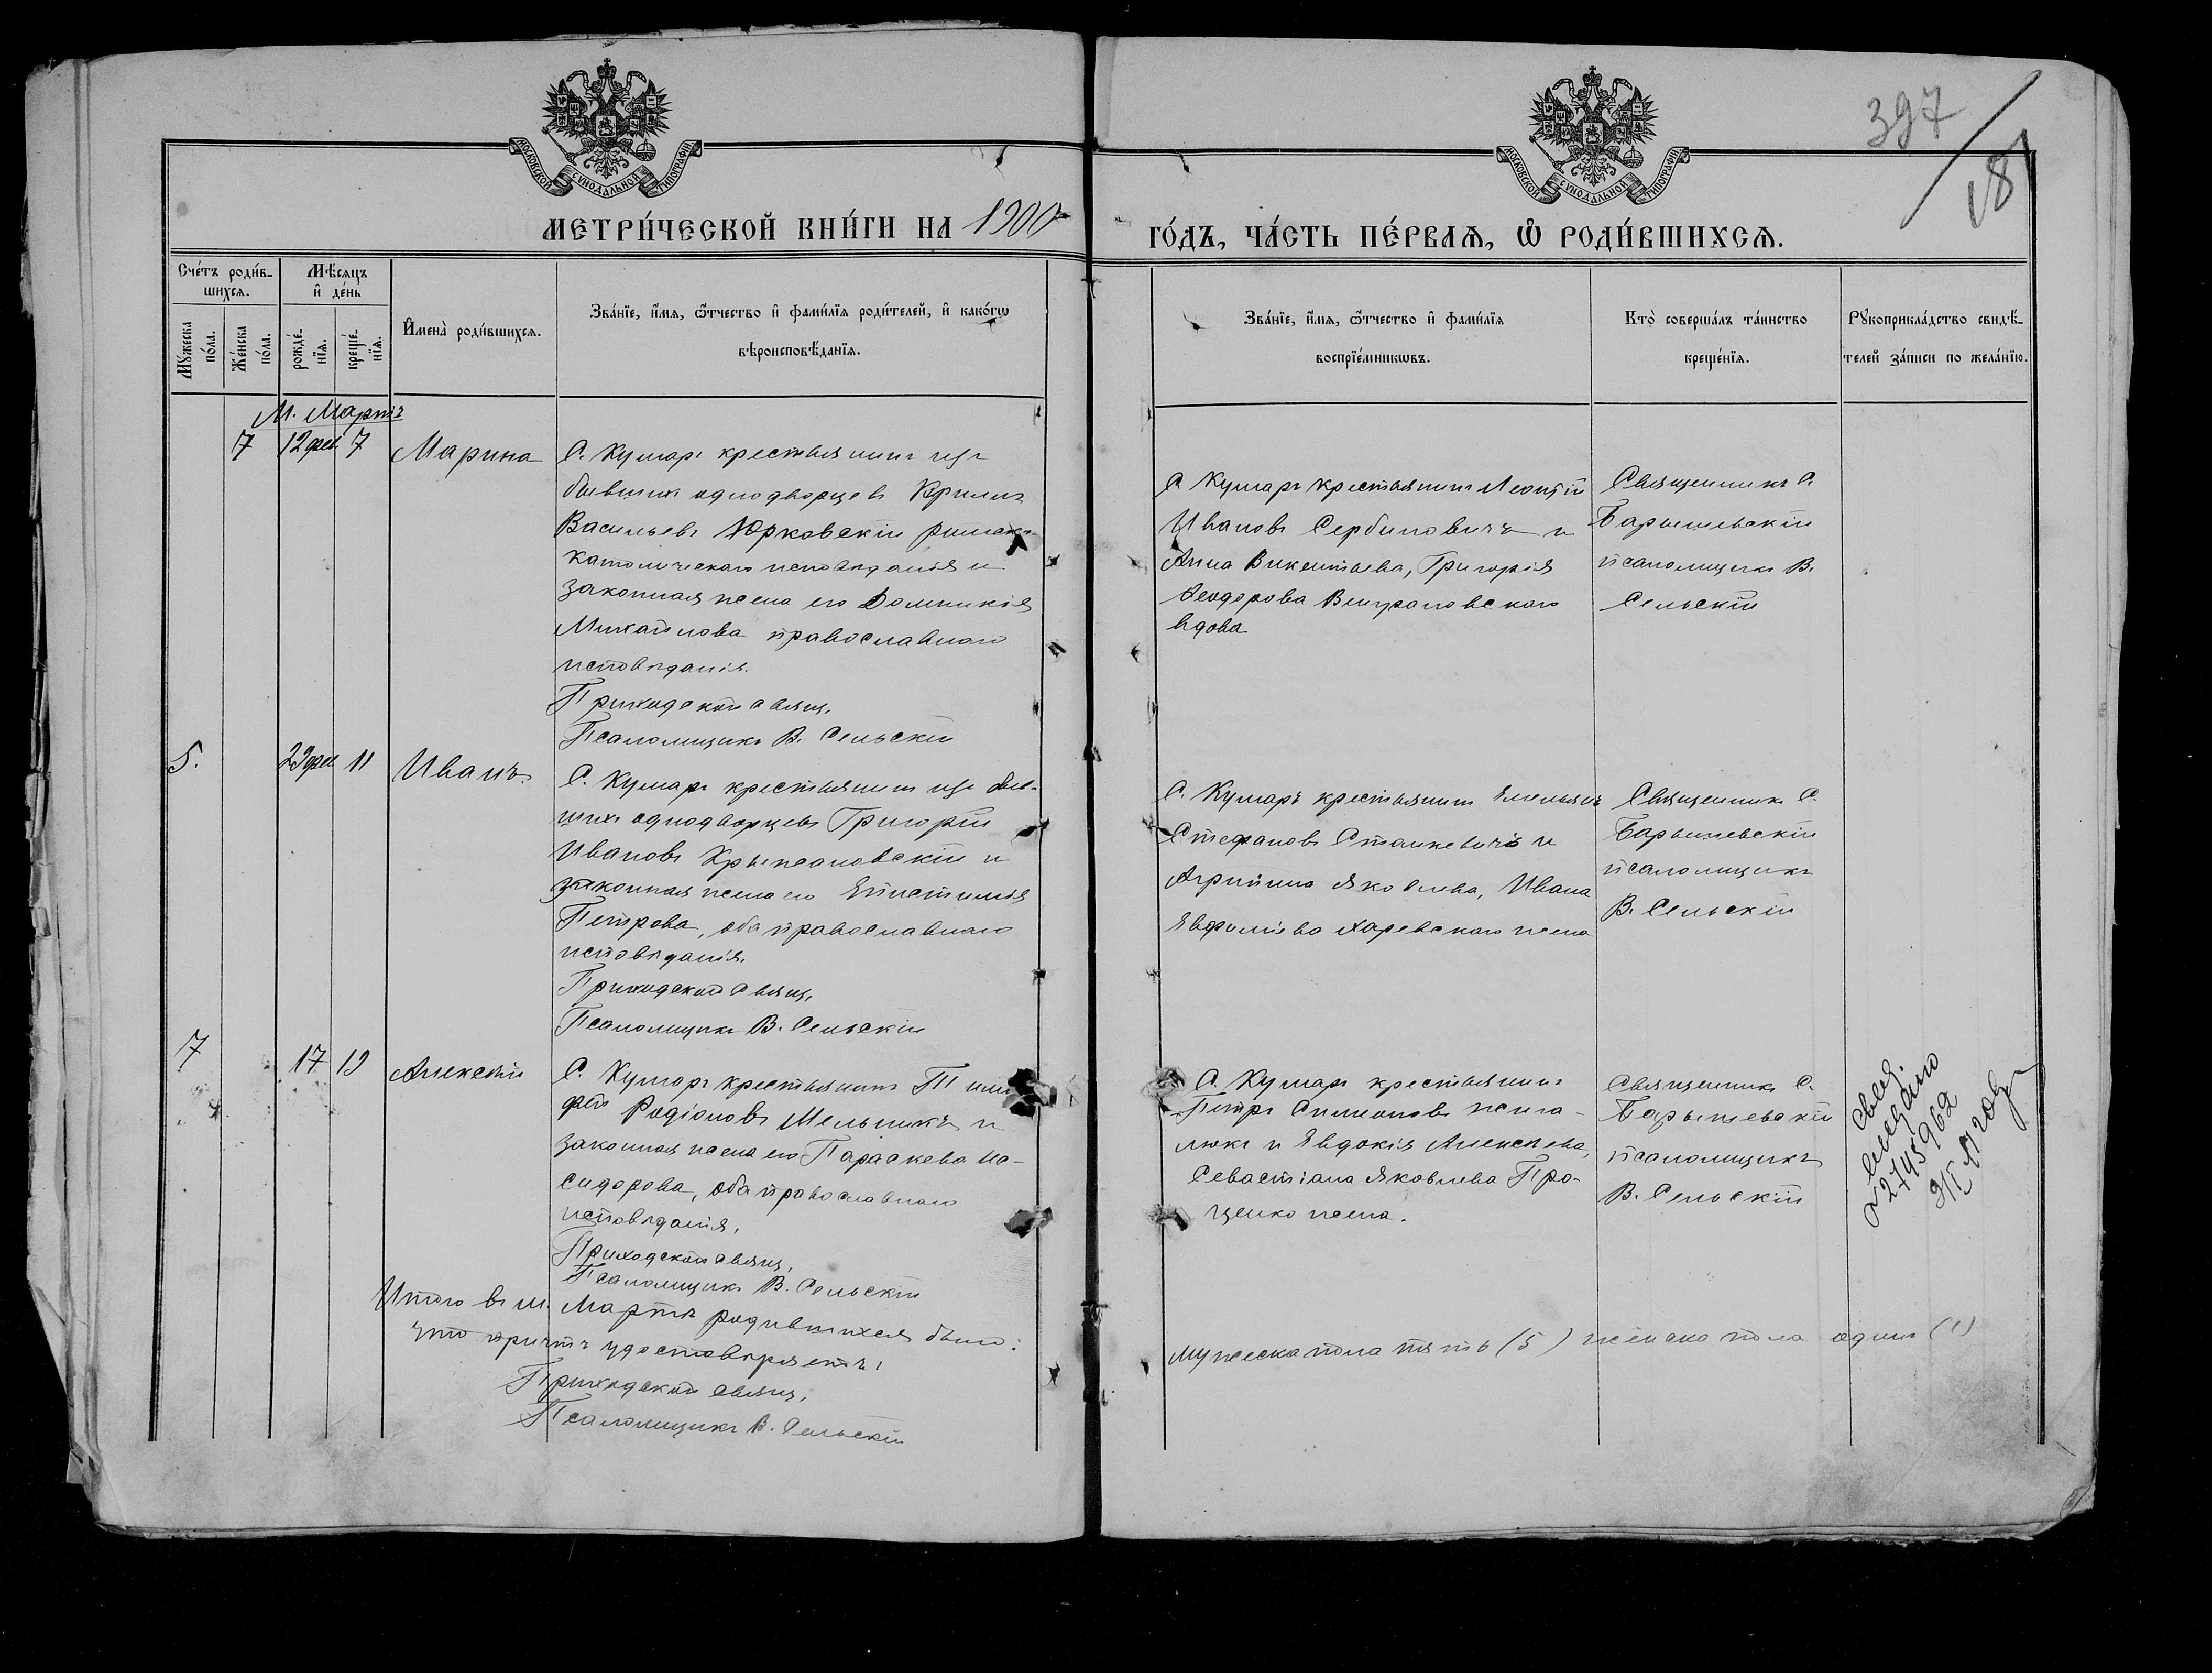 397
18
МОСКОВСКОЙ СУНОДАЛЬНОЙ ТИПОГРАФІИ
МОСКОВСКОЙ СУНОДАЛЬНОЙ ТИПОГРАФІИ
МЕТРИ́ЧЕСКОЙ КНИ́ГИ НА 1900
ГО́ДЪ, ЧА́СТЬ ПЕ́РВАЯ, Ѡ РОДИ́ВШИХСЯ.
Счётъ роди́в-
шихся.
Мѣсяцъ
и де́нь
Мꙋжеска
по́ла.
Же́нска
по́ла.
рожде́-
нїя.
креще́-
нїя.
Имена̀ роди́вшихся.
Зва́нїе, и́мя, ѻ́тчество и фами́лїя роди́телей, и како́гѡ
вѣроисповѣ́данїя.
Зва́нїе, и́мя, ѻ́тчество и фами́лїя
воспрїе́мникѡвъ.
Кто̀ соверша́лъ та́инство
креще́нїя.
Рꙋкоприкла́дство свидѣ́-
телей за́писи по жела́нїю.
М. Мартъ
7 12 фев 7 Марина
С. Кумаръ крестьянинъ изъ
бывших однодворцевъ
Васильевъ Юрковскій римско-
католическаго исповѣданія и
законная жена его Домникія
Михайлова православнаго
исповѣданія.
Приходской свящ.
Псаломщикъ В. Сельскій
С. Кумаръ крестьянинъ Леонтій
Ивановъ Сербиновичъ и
Анна Викентьева, Григорія
Ѳеодорова Венграновскаго
вдова
Священникъ С.
Барышевскій
псаломщикъ В.
Сельскій
5. 29 фев 11 Иванъ.
С. Кумаръ крестьянинъ изъ быв-
шихъ однодворцевъ Григорій
Ивановъ Крыжановскій и
законная жена его Епистимія
Петрова, оба православнаго
исповѣданія.
Приходской свящ.
Псаломщикъ В. Сельскій
С. Кумаръ крестьянинъ Емельянъ
Стефановъ Станкевичъ и
Агрипина Яковлева, Ивана
Евфиміева Харевскаго жена
Священникъ С.
Барышевскій
псаломщикъ
В. Сельскій
7 17 19 Алексѣй
С. Кумаръ крестьянинъ Тимо
фей Родіоновъ Мельникъ и
законная жена его Параскева Ис-
сидорова, оба православнаго
исповѣданія.
Приходской свящ.
Псаломщикъ В. Сельскій
С. Кумаръ крестьянинъ
Петръ Симеоновъ
люкъ и Евдокія Алексѣева,
Севастіана Яковлева Про-
ценко жена.
Священникъ С.
Барышевскій
псаломщикъ
В. Сельскій
свид.
выдано
2745962
17 году
Итого въ м. Мартѣ родившихся было:
мужеска пола пять (5) женска пола одна (1)
что причтъ удостовѣряетъ:
Приходской свящ.
Псаломщикъ В. Сельскій